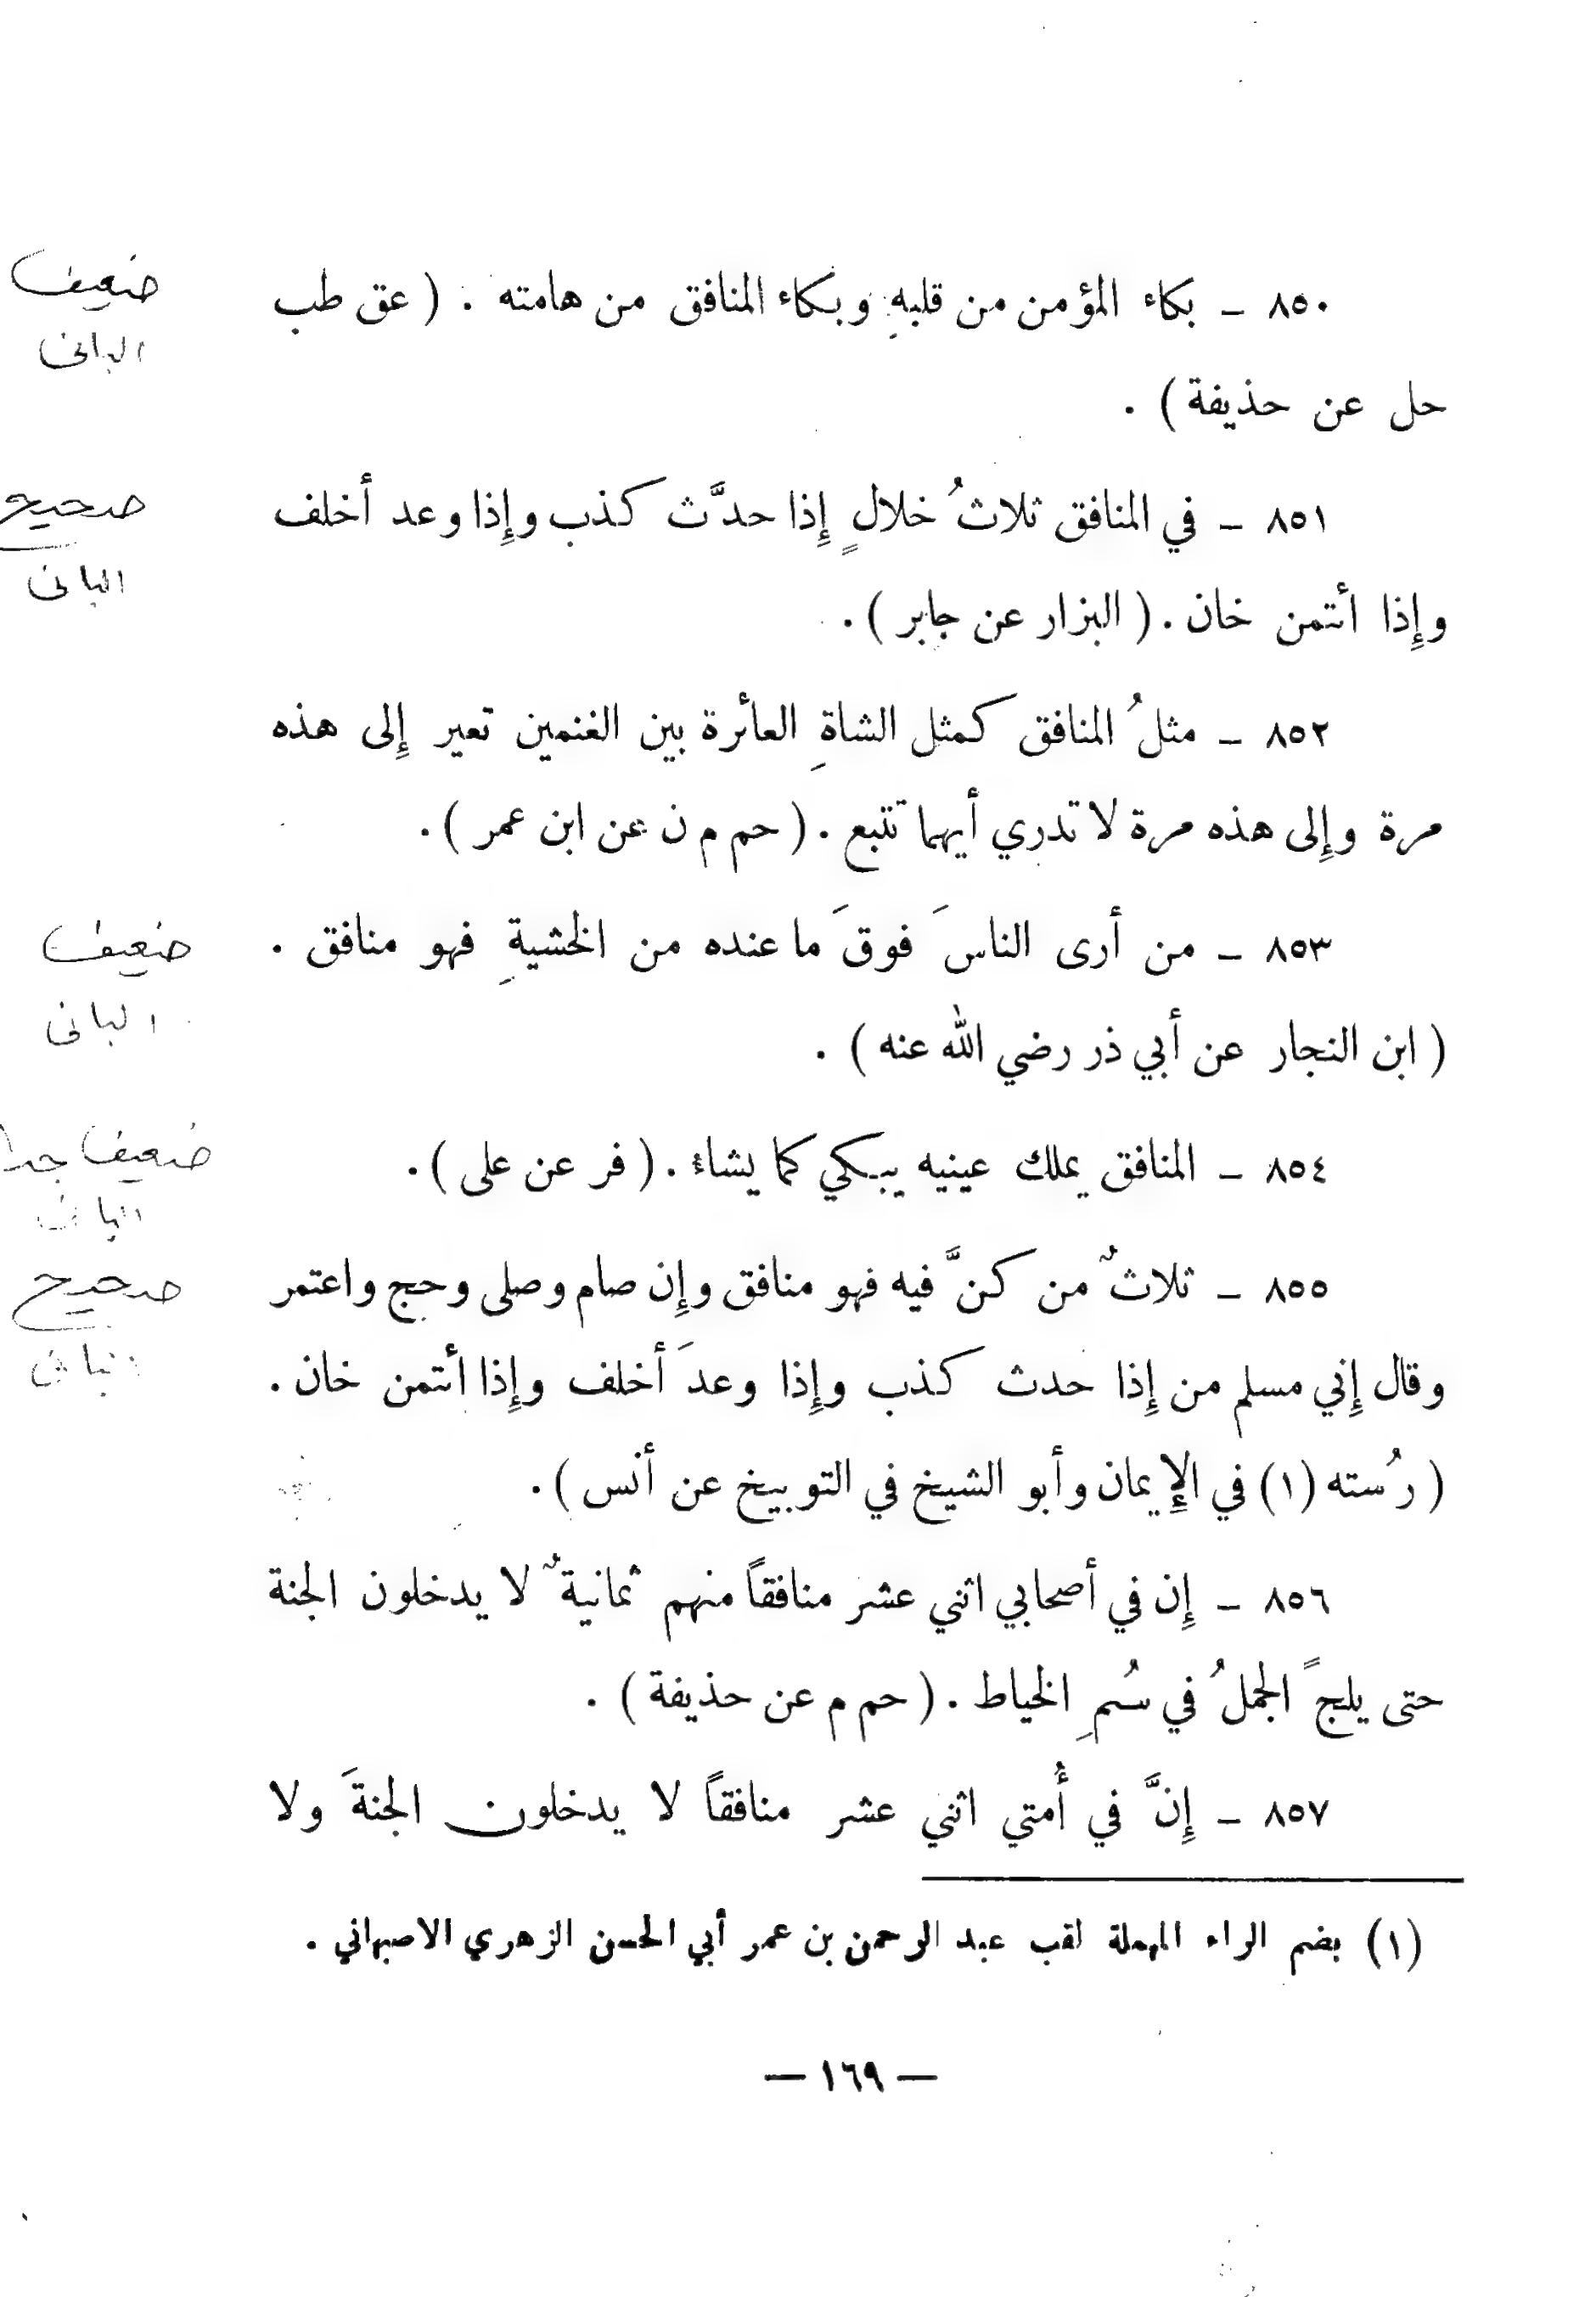 ٨٥٠ – بكاء المؤمن من قلبهِ وبكاء المنافق من هامته . ( عق طب
ضعيف
البانى
حل عن حذيفة ) .
٨٥١ – في المنافق ثلاثُ خلالٍ إِذا حدَّث كذب وإِذا وعد أخلف
صحيح
البانى
وإِذا أئتمن خان . ( البزار عن جابر ) .
٨٥٢ – مثلُ المنافق كمثل الشاةِ العائرة بين الغنمين تعير إِلى هذه
مرة وإِلى هذه مرة لا تدري أيهما تتبع . ( حم م ن عن ابن عمر ) .
٨٥٣ – من أرى الناسَ فوقَ ما عنده من الخشيةِ فهو منافق .
ضعيف
البانى
( ابن النجار عن أبي ذر رضي الله عنه ) .
٨٥٤ – المنافق يملك عينيه يبكي كما يشاء . ( فر عن على ) .
ضعيف جدا
البانى
٨٥٥ – ثلاثٌ من كنَّ فيه فهو منافق وإِن صام وصلى وحج واعتمر
صحيح
وقال إِني مسلم من إِذا حدث كذب وإِذا وعدَ أخلف وإِذا أئتمن خان .
( رُسته (١) في الإِيمان وأبو الشيخ في التوبيخ عن أنس ) .
٨٥٦ – إِن في أصحابي اثني عشر منافقاً منهم ثمانيةٌ لا يدخلون الجنة
حتى يلجً الجملُ في سُمِ الخياط . ( حم م عن حذيفة ) .
٨٥٧ – إِنَّ في أُمتي اثني عشر منافقاً لا يدخلون الجنةَ ولا
(١) بضم الراء المهملة لقب عبد الرحمن بن عمر أبي الحسن الزهري الاصبهاني .
— ١٦٩ —